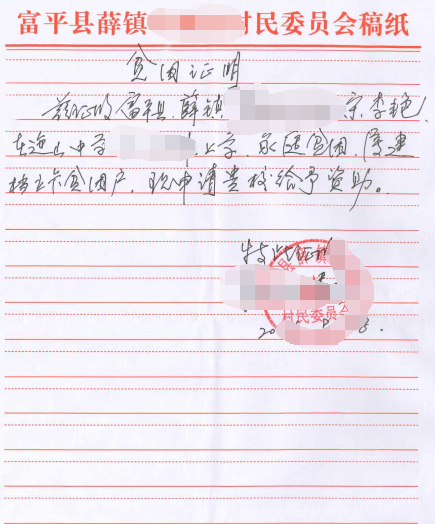 富平县薛镇 村民委员会稿纸
贫困证明
兹证明富平县薛镇 宗李艳,
在迤山中学 上学,家庭贫困,属建
档立卡贫困户,现申请贵校给予资助。
特此证明
村民委员会